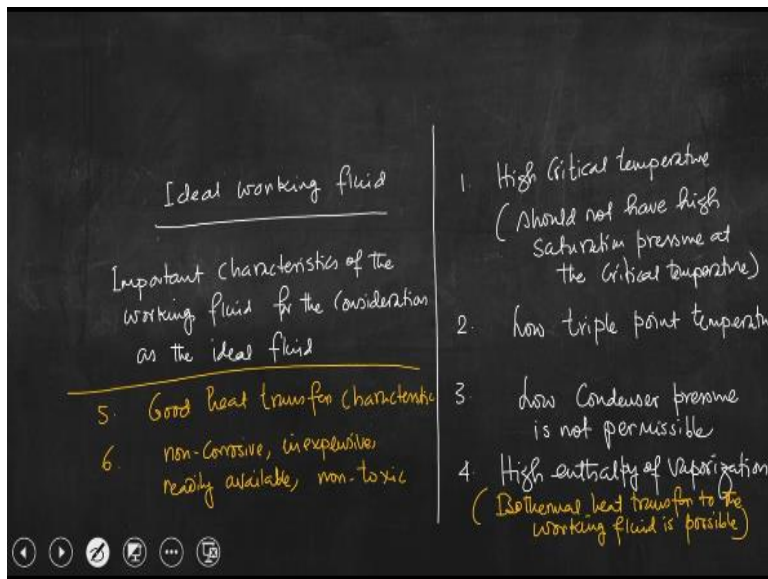 Ideal working fluid
Important characteristics of the
working fluid for the consideration
as the ideal fluid
5. Good heat transfer characteristic
6. non-corrosive, inexpensive,
readily available, non-toxic
1. High Critical temperature
(should not have high
saturation pressure at
the critical temperature)
2. Low triple point temperatu
3 Low Condenser pressure
is not permissible
4. High enthalpy of vaporization
(Isothermal heat transfer to the
working fluid is possible)